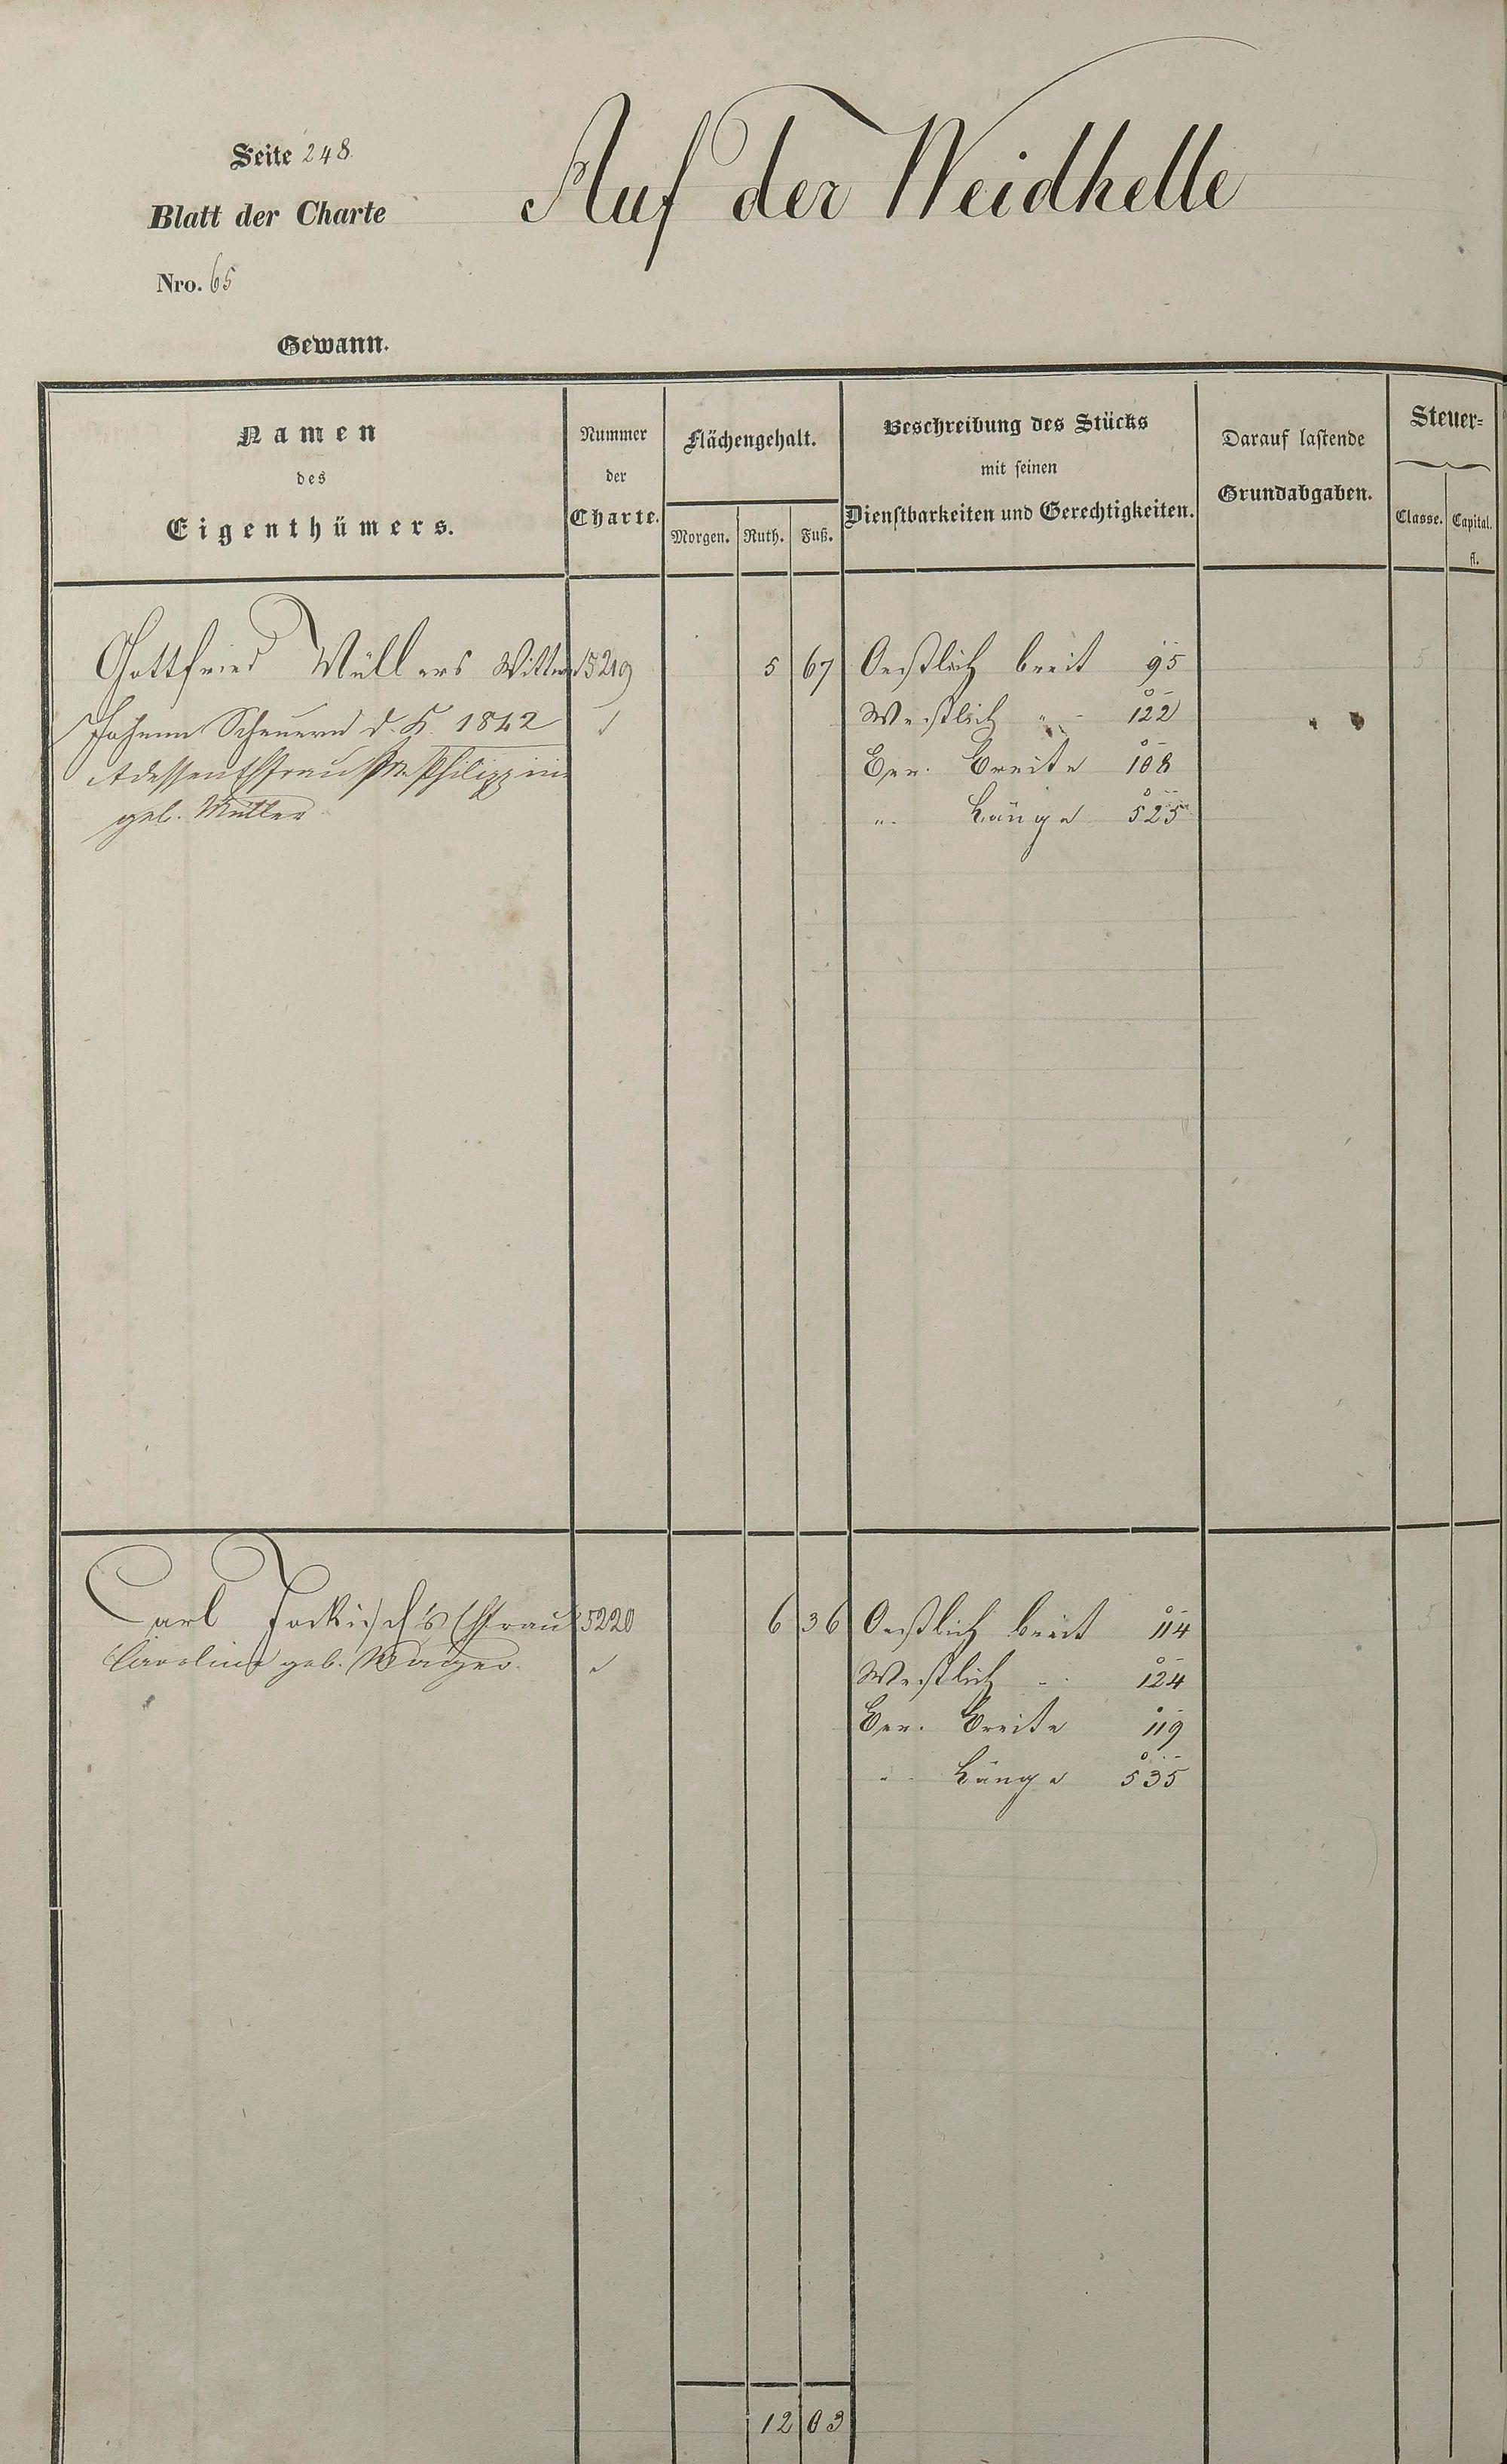 Seite 248.
Auf der Weidhelle
Blatt der Charte
Nro. 65
Gewann.
Namen
des
Eigenthümers.
Nummer
der
Charte.
Flächengehalt.
Morgen. Ruth. Fuß.
Beschreibung des Stücks
mit seinen
Dienstbarkeiten und Gerechtigkeiten.
Darauf lastende
Grundabgaben.
Steuer=
Classe. Capital.
fl.
Gottfried Müllers Wittwe 5219 5 67 Oestlich breit 95 5
Johann Scheuern d. K. 1842 Westlich " 122
dessen Ehfrau Philippine Ber. Breite 108
geb. Müller " Länge 525
Carl Jockisch's Ehfrau 5220 6 36 Oestlich breit 114 5
Caroline geb. Westlich " 124
Ber. Breite 119
" Länge 535
12 03